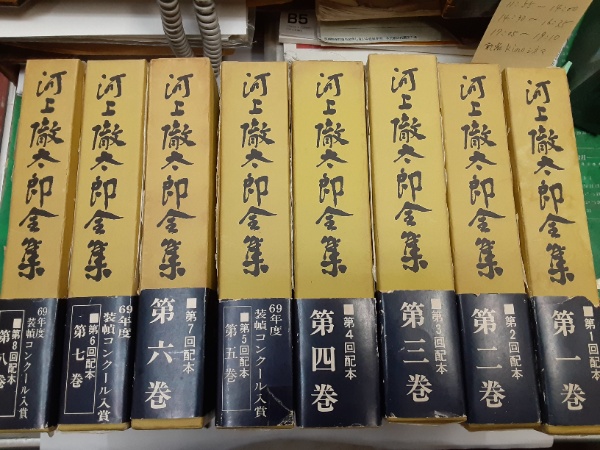 河上徹太郎全集
■第1回配本
第一巻
河上徹太郎全集
■第2回配本
第二巻
河上徹太郎全集
■第3回配本
第三巻
河上徹太郎全集
■第4回配本
第四巻
河上徹太郎全集
69年度
装幀コンクール入賞
■第5回配本
第五巻
河上徹太郎全集
■第7回配本
第六巻
河上徹太郎全集
69年度
装幀コンクール入賞
■第6回配本
第七巻
河上徹太郎全集
69年度
装幀コンクール入賞
■第8回配本
第八巻
B5